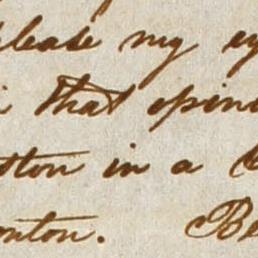 please my ey
that opini
tton in a
onton. Be